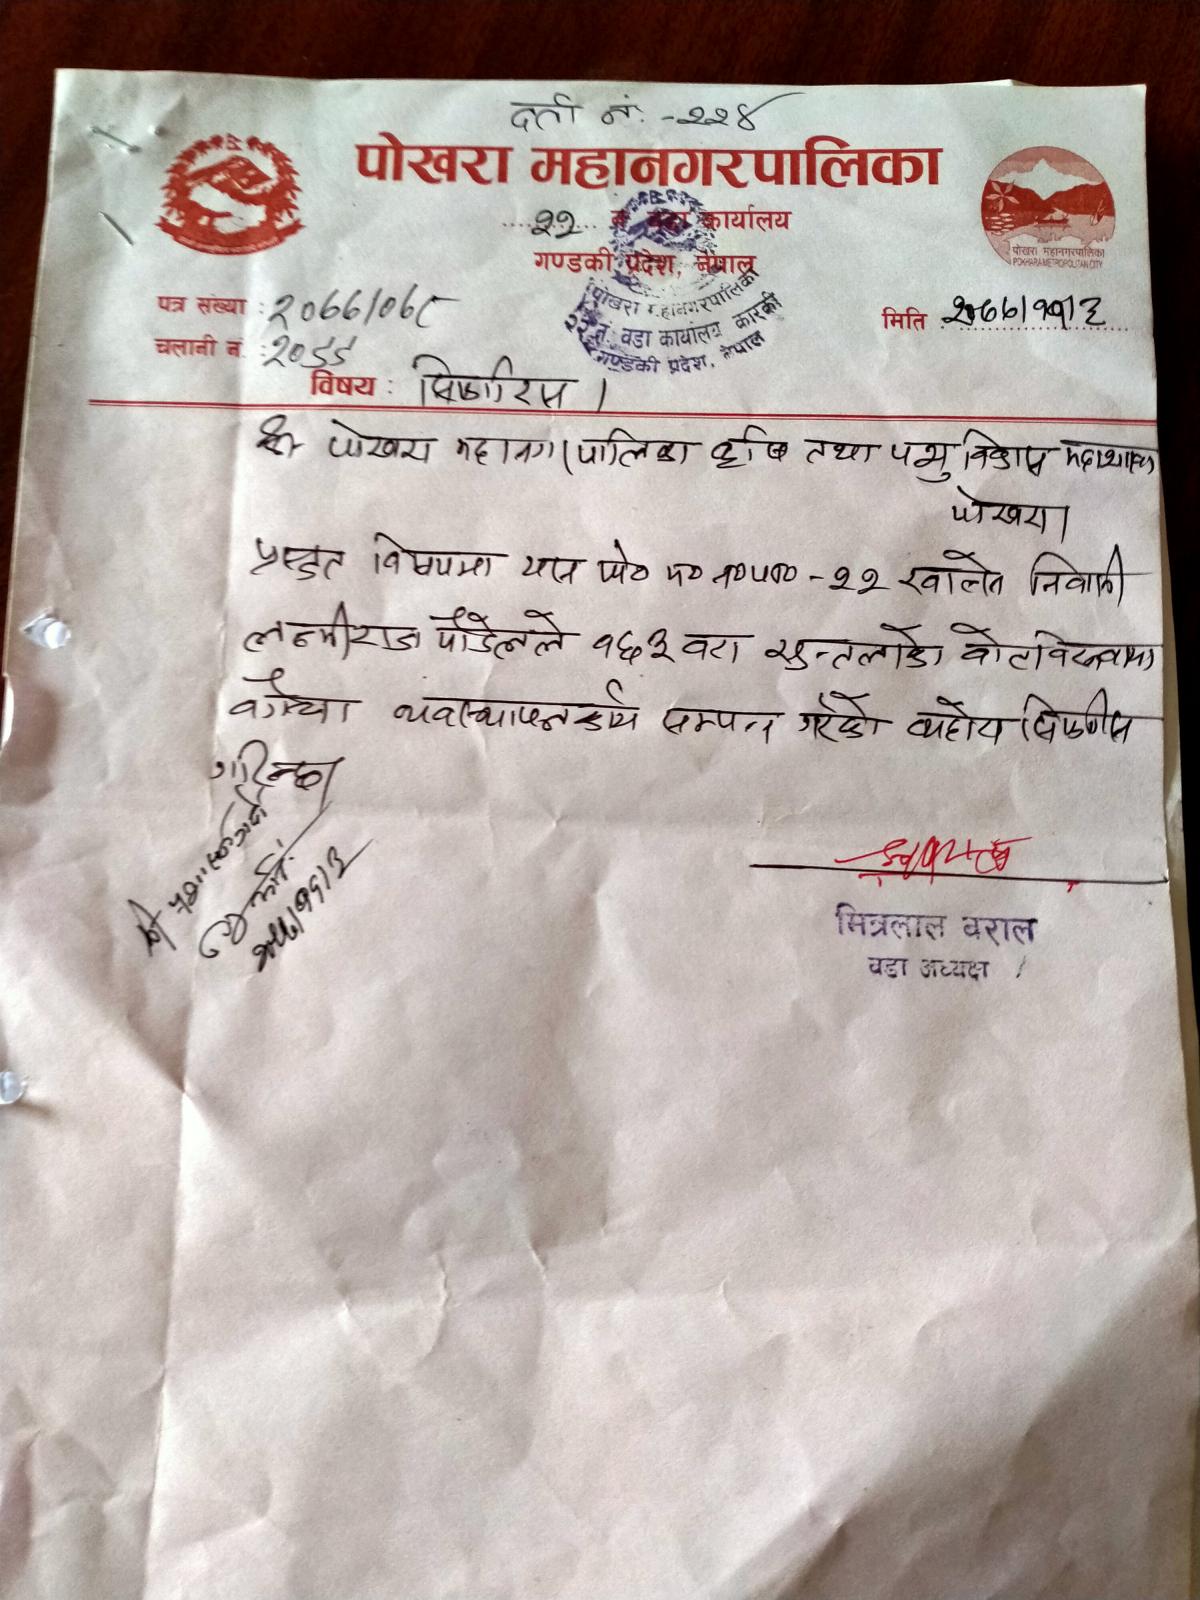 दर्ता नं. -२२४
पोखरा महानगरपालिका
२२ नं वडा कार्यालय
गण्डकी प्रदेश, नेपाल
पोखरा महानगरपालिका
२२ नं. वडा कार्यालय
गण्डकी प्रदेश, नेपाल
पोखरा महानगरपालिका
POKHARA METROPOLITAN CITY
पत्र संख्या : २०७७/०७८
मिति :
चलानी नं :
विषय : सिफारिस ।
श्री पोखरा महानगरपालिका कृषि तथा पशु विकास महाशाखा
पोखरा।
प्रस्तुत विषयमा यस पो० म० न०पा० -२२ निवासी
लक्ष्मीराज पौडेलले १६३ वटा सुन्तलाको बोटविरुवामा
बगैंचा व्यवस्थापन कार्य सम्पन्न गरेको व्यहोरा सिफारिस
गरिन्छ।
मित्रलाल बराल
वडा अध्यक्ष